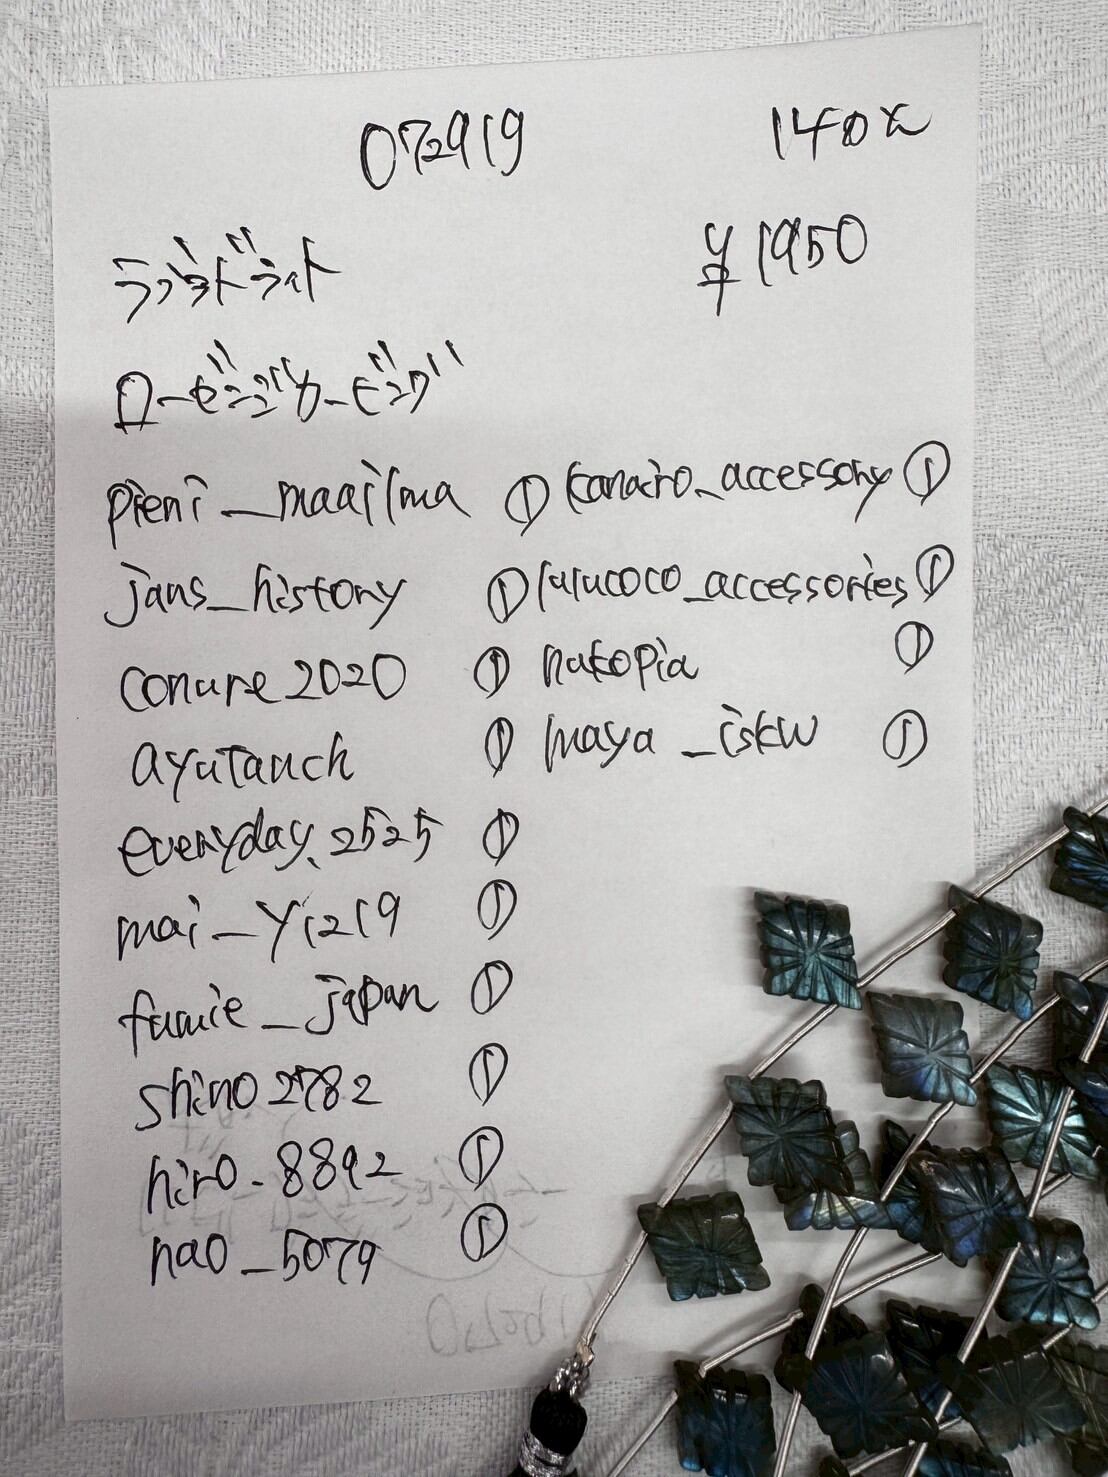 072919
140元
ラブラドライト
¥1950
ローゼンジカービング
pieni_maailma ①
kanairo_accessory ①
jans_history ①
lulucoco_accessories ①
conure2020 ①
nakopia ①
ayutauch ①
maya_iskw ①
everyday.2525 ①
mai_y1219 ①
fumie_japan ①
shino2782 ①
hiro.8892 ①
nao_5079 ①